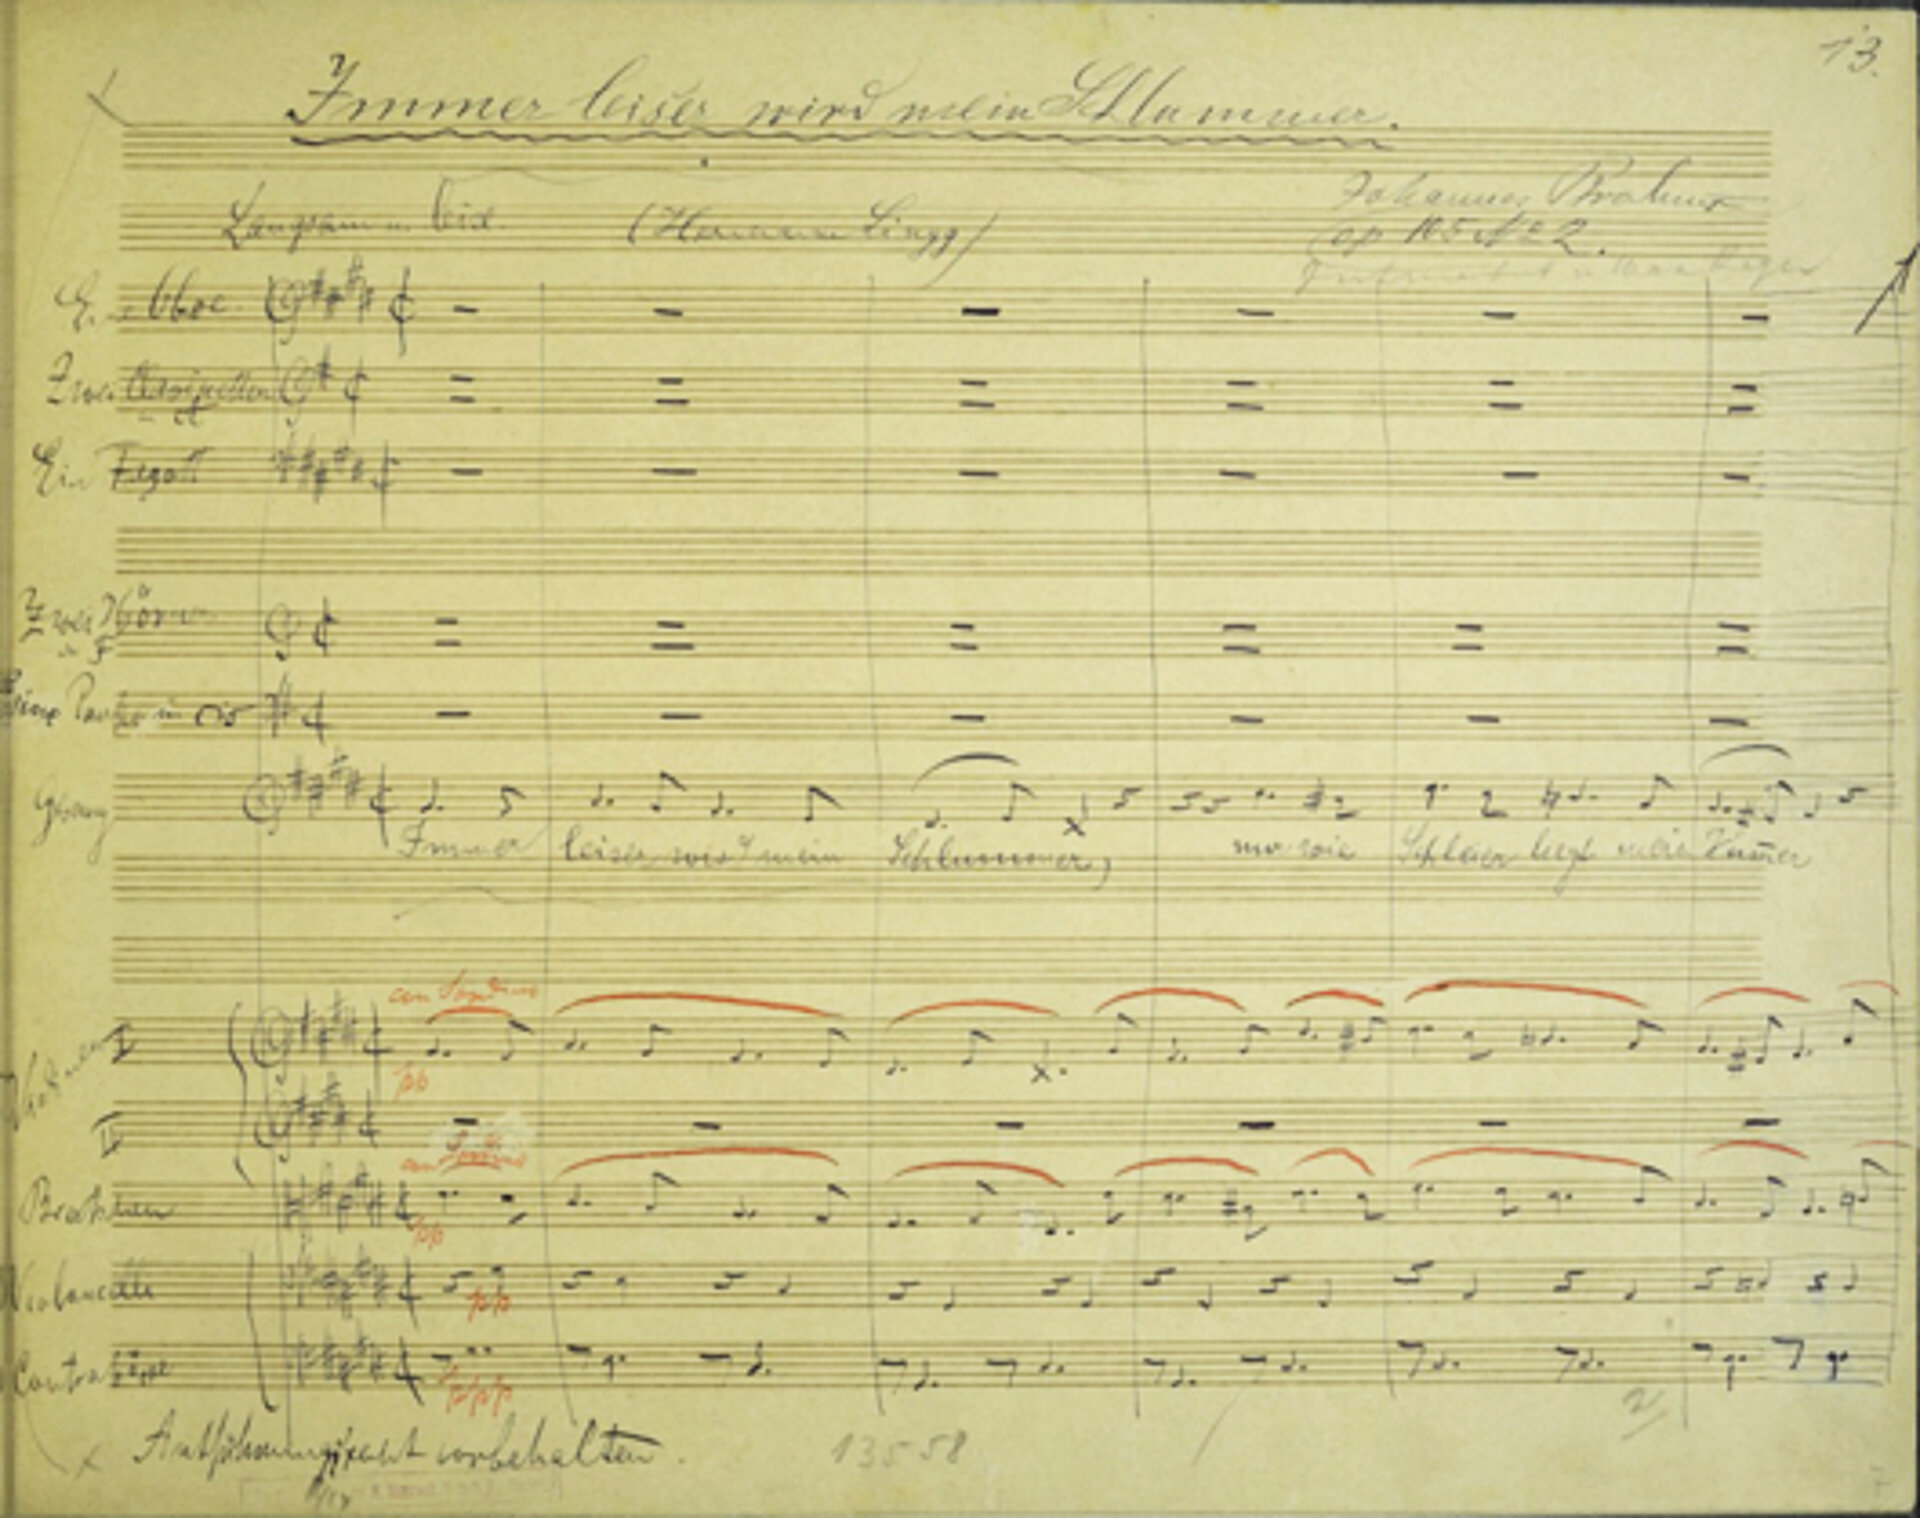 13.
Immer leiser wird mein Schlummer.
Langsam u. leise. (Hermann Lingg) Johannes Brahms
op 105 No 2.
Instrumentiert v. Max Reger
Eine Oboe.
Zwei Clarinetten
Ein Fagott
Zwei Hörner
in F
Eine Pauke in cis
Gesang
Immer leiser wird mein Schlummer, nur wie Schleier liegt mein Kummer
con Sordino
Violinen I
pp
II
con Sordino
Bratschen
pp
Violoncelli
pp
Contrabässe
ppp
2
Aufführungsrecht vorbehalten.
13558
7